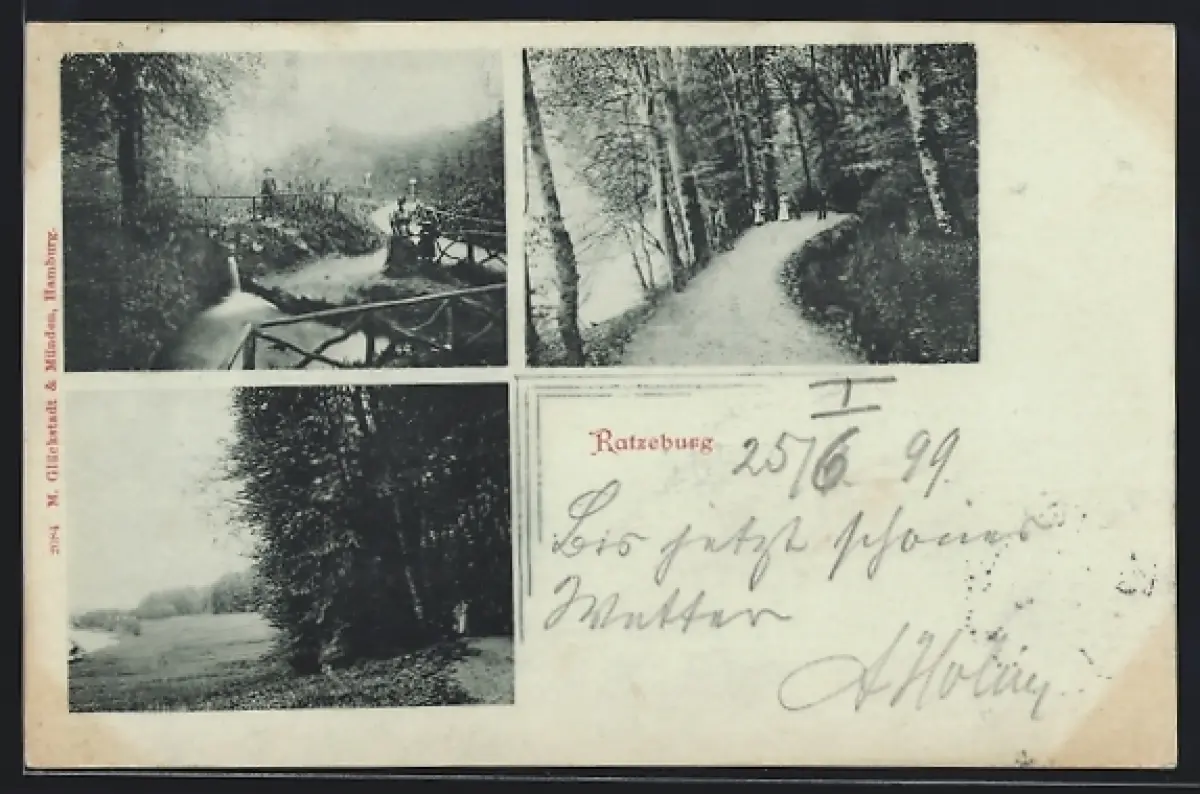 2084 M. Glückstadt & Münden, Hamburg.
I
Ratzeburg 25/6 99.
Bis jetzt schönes
Wetter